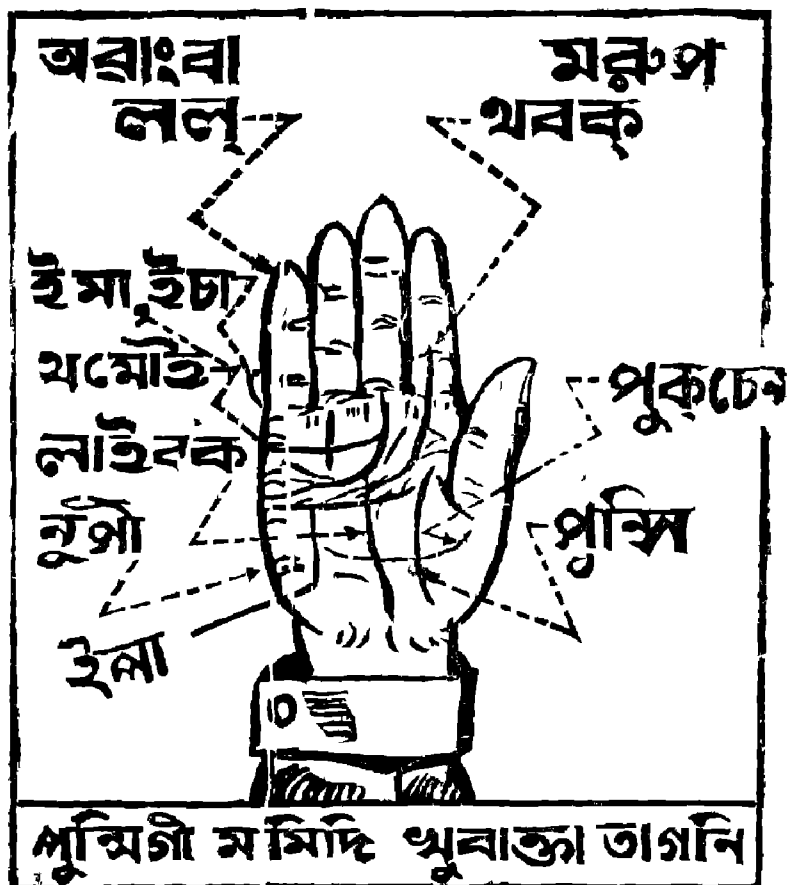 অৱাংবা
লল্
মরুপ
থবক্
ইমা,ইচা
থমোই
লাইবক
নুপী
ইপা
পুক্চেন
পুন্সি
পুন্সিগী মমিদি খুবাক্তা তাগনি